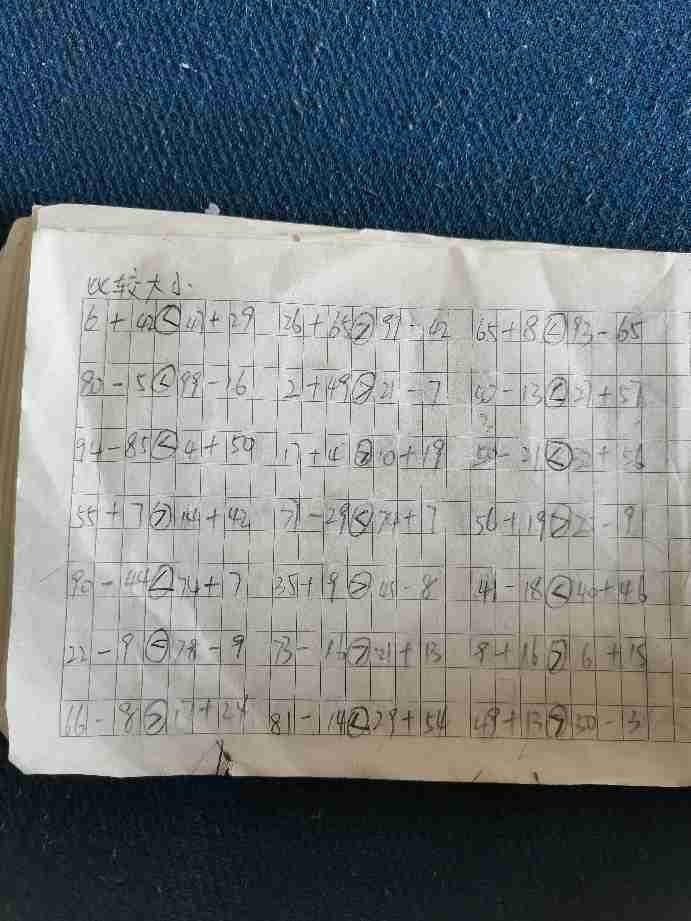 比较大小
6+42<47+29 26+65>99-42 65+8<93-65
90-5<99-16 2+49>21-7 50-13<27+57
94-85<4+50 17+4>10+19 50-21<32+56
55+7>14+42 71-29<74+7 56+19>22-9
90-44<74+7 35+9>45-8 41-18<40+46
22-9<78-9 73-16>21+13 8+16>6+15
66-8>17+24 81-14<29+54 49+13>30-3